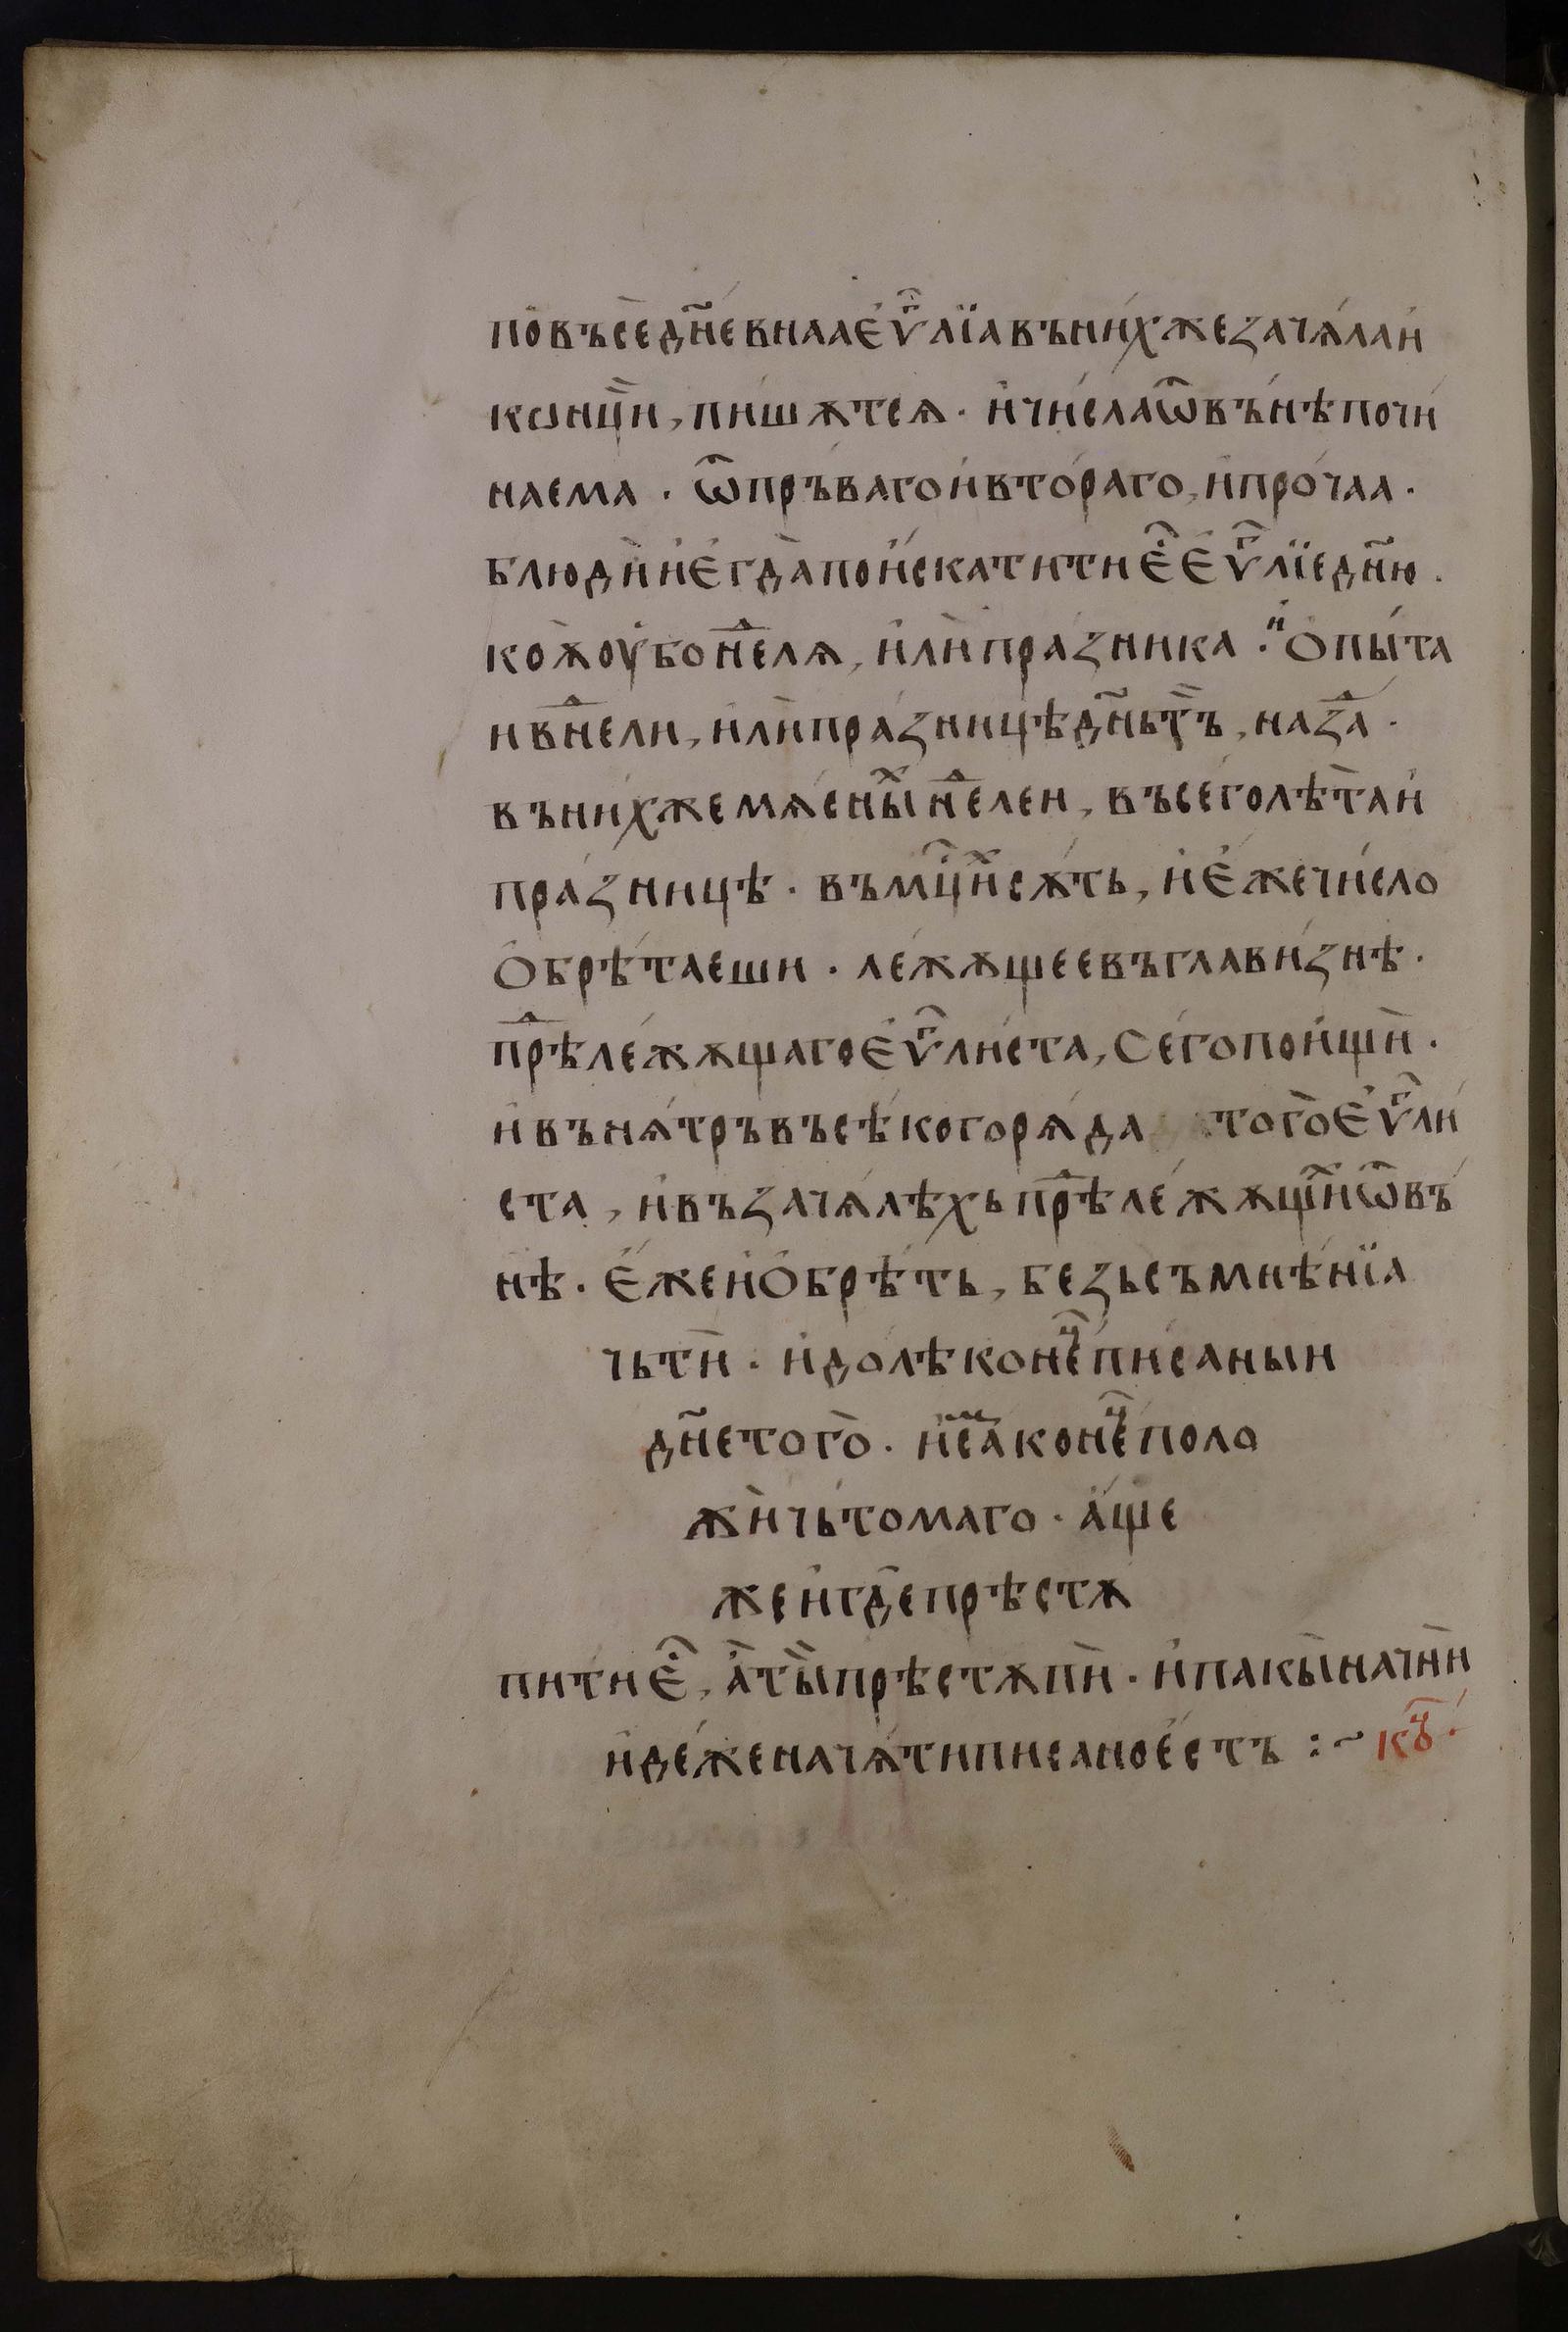 повъседн҃евнаа є҆ѵⷢ҇лїа въ ни́хже зачѧ́ла и҆
кѡнци̏, пи́шѫтсѧ · и҆ чи́сла ѿвънѣ̀ почи
наема · ѿ пръ́ваго и҆ вто́раго, и҆ про́чаа ·
блюди̏ и҆ є҆гда̀ пои́скати ти є҆ⷭ҇ є҆ѵⷢ҇лїе дн҃ю ·
коѧ̀ ᲂу҆бо нⷣелѧ, и҆лѝ пра́зника · и҆ ѻ҆пы́та
и внⷣели, и҆лѝ пра́зницѣ дн҃ь тъ̏, на заⷣ ·
въ ни́хже мѧ́сны̏ⷯ нⷣелеи, въсего̀ лѣ́та и҆
пра́зницѣ · въ мцⷭ҇иⷯ сѫ́ть, и҆ є҆́же чи́сло
ѻ҆брѣ́таеши · леж́ѫщее въ глави́знѣ ·
прⷣѣлежѫ́щаго є҆ѵⷢ҇ли́ста, се́го пои҆щѝ ·
и҆ вънѫ́тръ въсѣ́кого рѧ́да того̀ є҆ѵⷢ҇ли́
ста, и҆ въ зачѧ́лѣхь прⷣѣлежѫ́щиⷯ ѿвъ
нѣ̀ · є҆́же и҆ ѻ҆брѣ́ть, безь съмнѣ́нїа
чьтѝ · и҆ до́лѣ конеⷰ҇ пи́саныи
дн҃е того̀ · и҆ сїа̀ конеⷰ҇ поло
жѝ чьто́маго · а҆́ще
же и҆ гдѐ прѣстѫ
пити є҆ⷭ҇, а҆̀ ты̏ прѣстѫпѝ · и҆ пакы̀ начнѝ
и҆де́же начѧ́ти писано є҆́стъ :~ кⷱ҇ъ ·